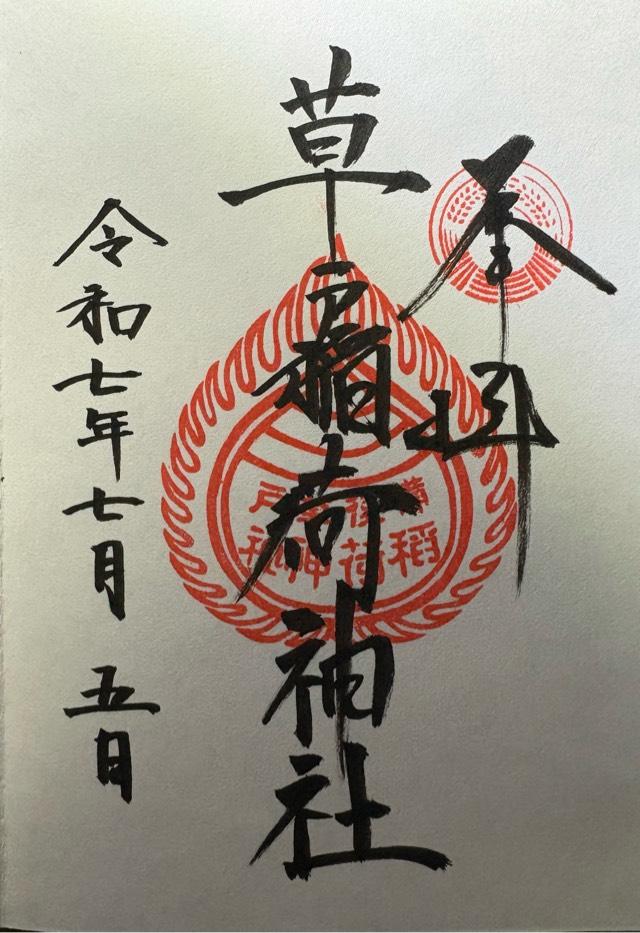 奉拝
草戸稲荷神社
備後草戸
稲荷神社
令和七年七月五日